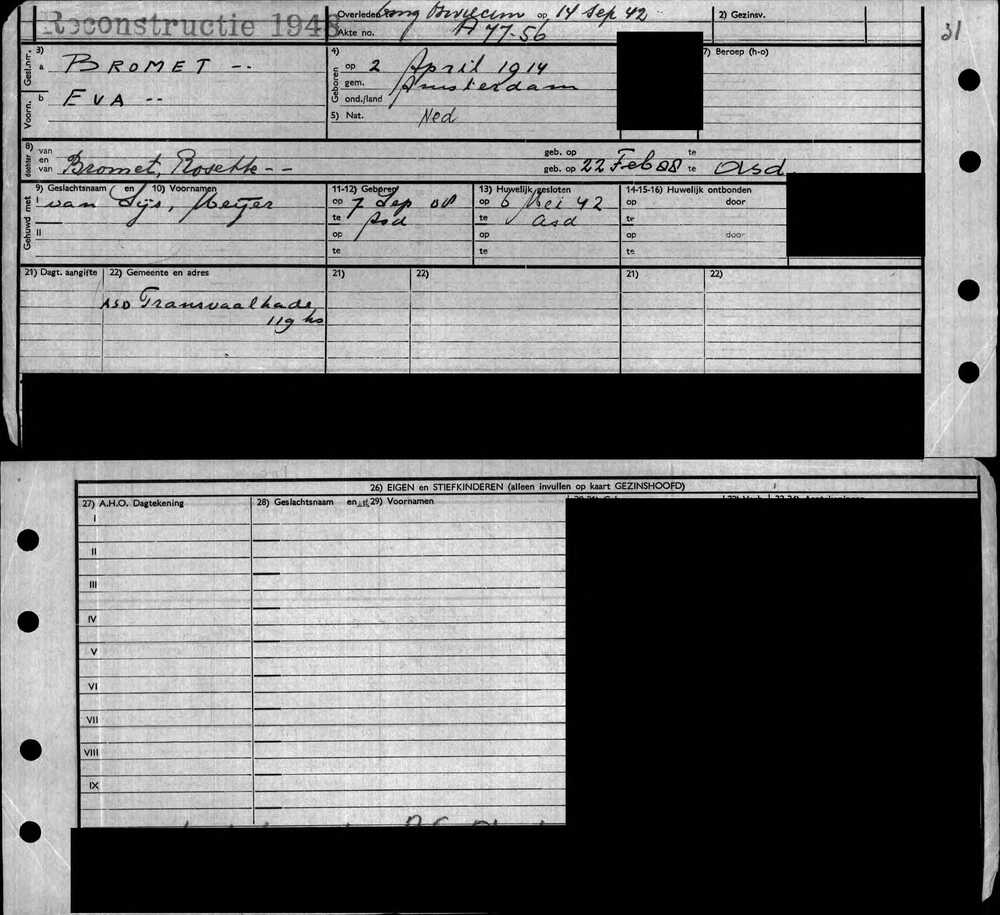 Reconstructie 1948
Overleden omg op 14 Sep 42
2) Gezinsv.
31
Akte no. A 77-56
3)
4)
7) Beroep (h-o)
Gesl.nr.
a BROMET --
Geboren
op 2 April 1914
gem. Amsterdam
Voorn.
b EVA --
ond./land
5) Nat. Ned
8) van
en
geb. op te
dochter
van Bromet, Rosette --
geb. op 22 Feb 88 te Asd
9) Geslachtsnaam en 10) Voornamen
11-12) Geboren
13) Huwelijk gesloten
14-15-16) Huwelijk ontbonden
Gehuwd met
I van Lijs, Meijer
op 7 Sep 08
op 6 Mei 42
op door
te Asd
te Asd
te
II
op
op
op door
te
te
te
21) Dagt. aangifte
22) Gemeente en adres
21)
22)
21)
22)
ASD Transvaalkade
119 hs
26) EIGEN en STIEFKINDEREN (alleen invullen op kaart GEZINSHOOFD)
27) A.H.O. Dagtekening
28) Geslachtsnaam en 29) Voornamen
I
II
III
IV
V
VI
VII
VIII
IX